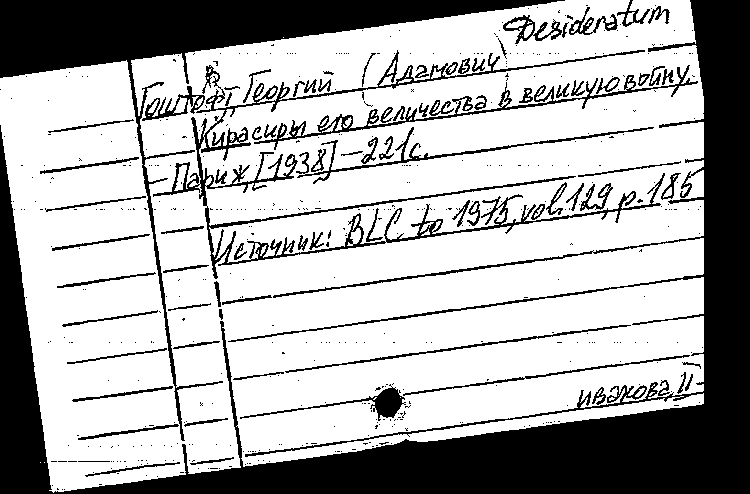 Desideratum
Гоштофт, Георгий (Адамович)
Кирасиры его величества в великую войну.
— Париж, [1938] — 221с.
Источник: BLC to 1975, vol. 129, p. 185